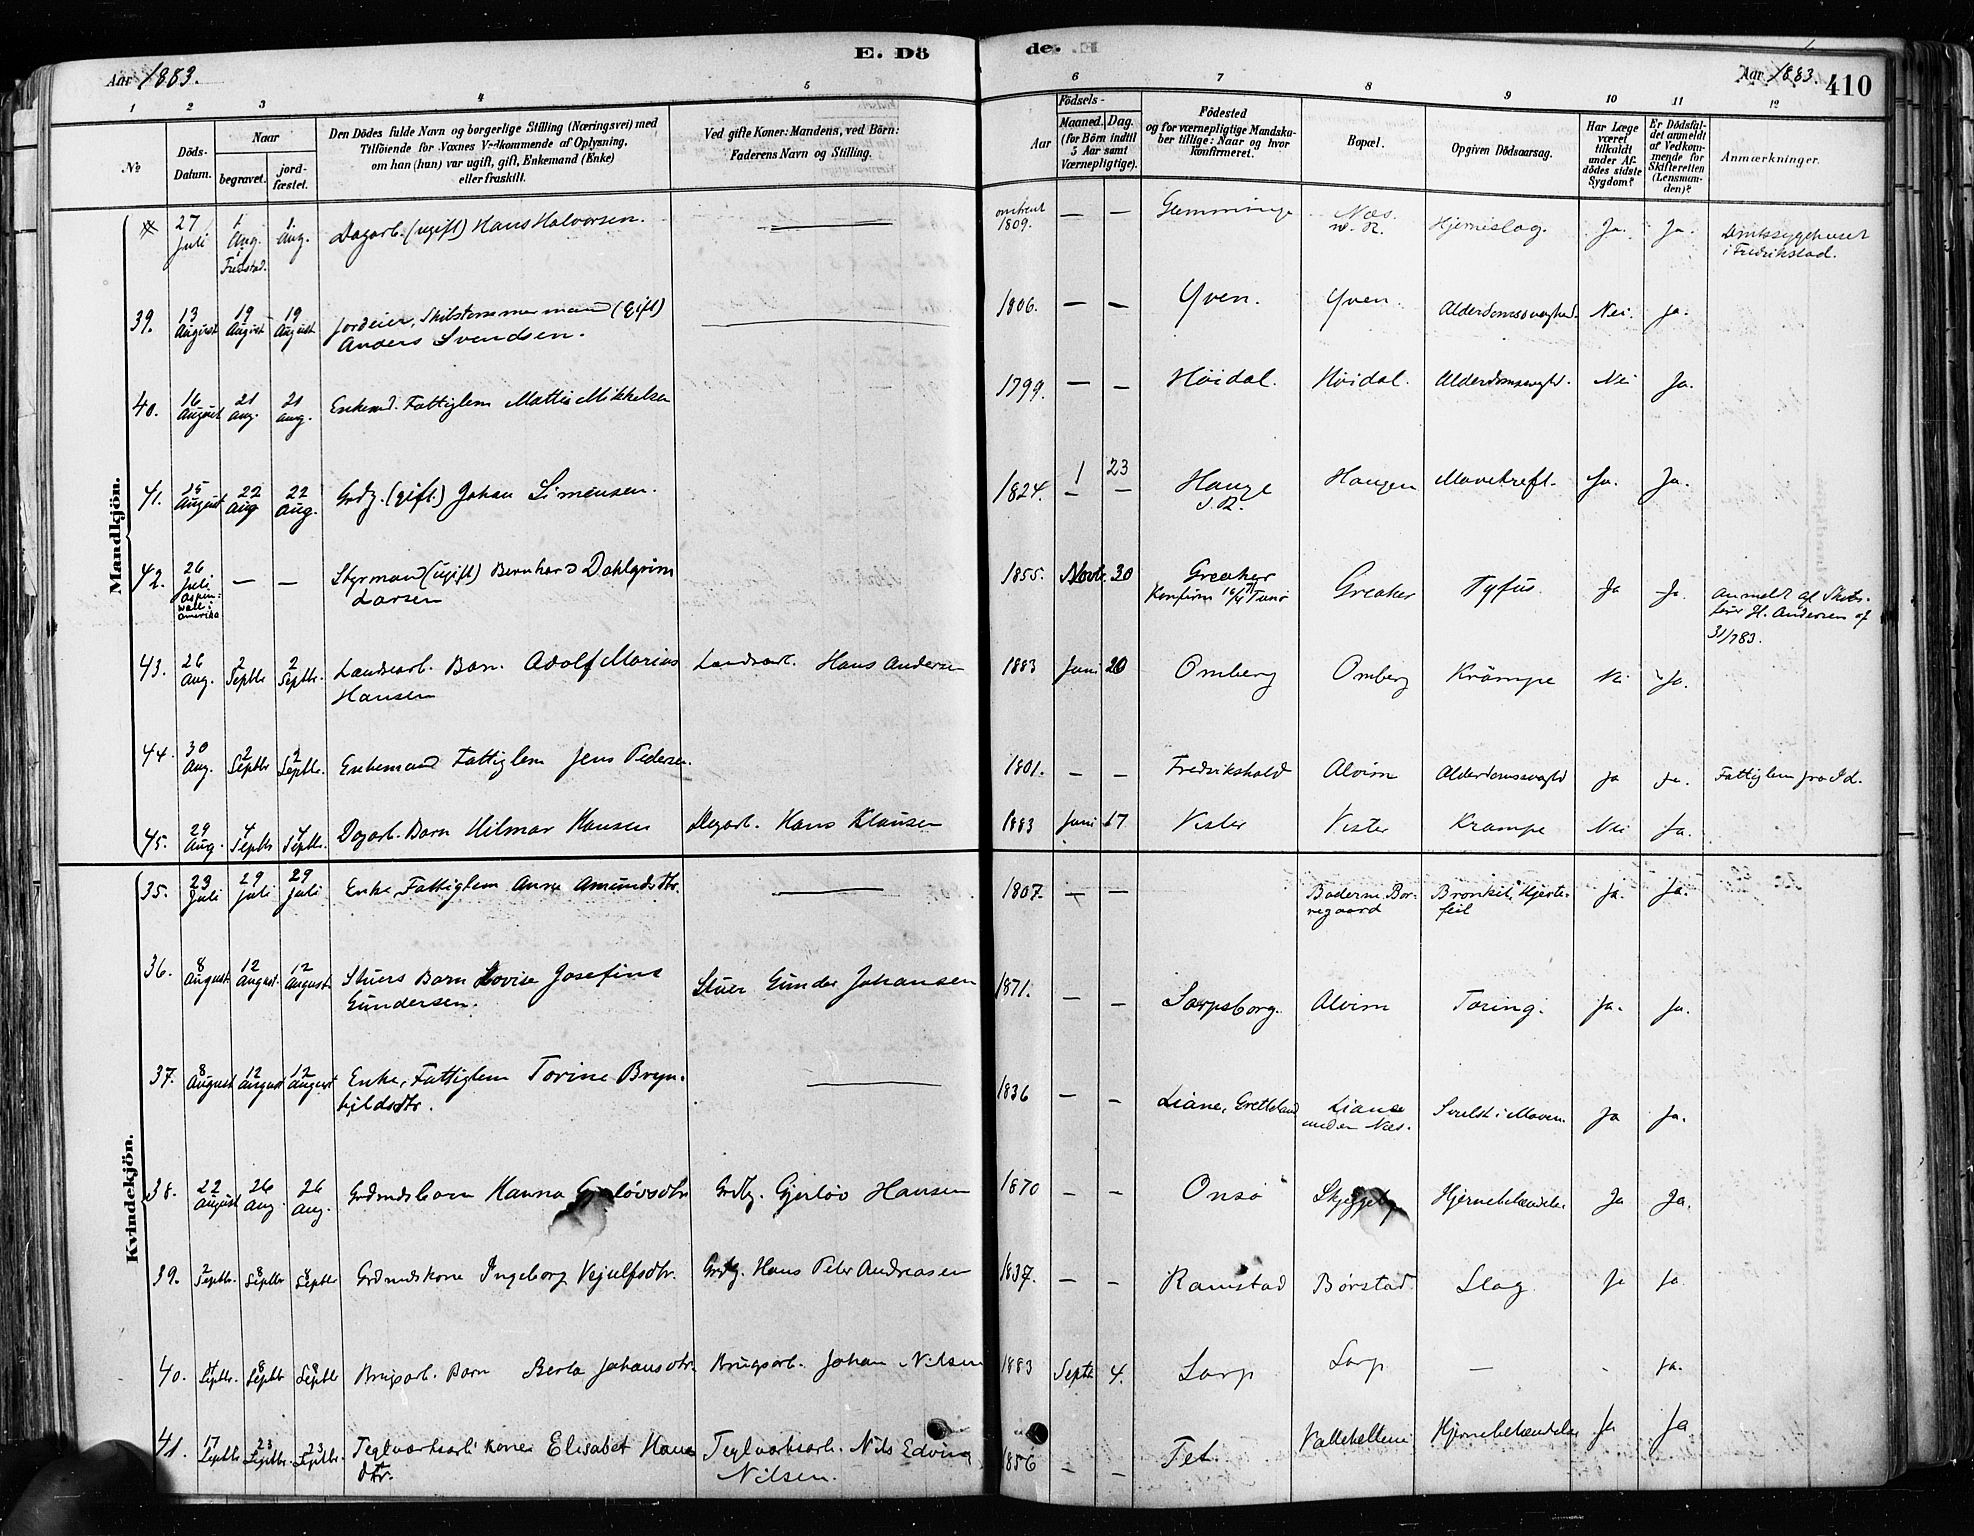 E. Dö
de.
Aar 1883.
Aar 1883.
410
1 2 3 4 5
6 7 8 9 10 11 12
№
Döds-Datum.
Naar
begravet.
jord-fæstet.
Den Dödes fulde Navn og borgerlige Stilling (Næringsvei) med
Tilföiende for Voxnes Vedkommende af Oplysning,
om han (hun) var ugift, gift, Enkemand (Enke)
eller fraskilt.
Ved gifte Koner: Mandens, ved Börn:
Faderens Navn og Stilling.
Födsels-
Aar
Maaned.
Dag.
(for Börn indtil
5 Aar samt
Værnepligtige).
Födested
og for værnepligtige Mandska-
ber tillige: Naar og hvor
konfirmeret.
Bopæl.
Opgiven Dödsaarsag.
Har Læge
været
tilkaldt
under Af-
dödes sidste
Sygdom?
Er Dödsfal-
det anmeldt
af Vedkom-
mende for
Skifteretten
(Lensman-
den)?
Anmærkninger.
Mandkjön.
27 Juli 1 Aug. Fredstad. 1 Aug. Dagarb. (ugift) Hans Halvorsen. — omtrent 1809. — — Glemminge Næs. Hjerneslag. Ja. Ja. Amtssygehuset
i Fredrikstad.
39. 13 August 19 August 19 August Jordeier, Skibstømmermand (gift)
Anders Svendsen. — 1806. — — Yven. Yven. Alderdomssvaghed. Nei. Ja.
40. 16 August 21 Aug. 21 Aug. Enkemd. Fattiglem Mattis Mikkelsen 1799. — — Høidal. Høidal. Alderdomssvaghd. Nei Ja.
41. 15 August 22 Aug 22 Aug. Grdbg. (gift.) Johan Simensen. 1824. 1 23 — — Hauge Haugen Mavekreft. Ja. Ja.
42. 26 Juli Aspinwall i Amerika — — Styrmand (ugift) Bernhard Dahlgrim
Larsen 1855. Novbr 30 Greaker
Konfirm Tunø Greaker Tyfus. Ja Ja. Anmeldt af Skibs-
fører H. Andersen af
31/783.
43. 26 Aug. 2 Septbr 2 Septbr. Landsarb. Barn. Adolf Marius
Hansen Landsarb. Hans Andersen 1883 Juni 20 Omberg Omberg Krämpe Nei Ja.
44. 30 Aug. 2 Septbr 2 Septbr. Enkemand Fattiglem Jens Pedersen. 1801. — — Fredrikshald Alvim Alderdomssvaghd Ja Ja. Fattiglem fra Id.
45. 29 Aug. 4 Septbr 4 Septbr. Dagarb. Barn Hilmar Hansen Dagarb. Hans Klausen 1883 Juni 17 Vister Vister Krampe Nei Ja.
Kvindekjön.
35. 23 Juli 29 Juli 29 Juli Enke, Fattiglem Anne Amundsdtr. — 1807. — — Baderne, Bor-
regaard Bronkit, Hjerte-
feil Ja. Ja.
36. 8 August. 12 August. 12 August. Stuers Barn Lovise Josefine
Gundersen. Stuer Gunder Johansen 1871. — — Sarpsborg. Alvim Tæring. Ja. Ja.
37. 8 August 12 August 12 August Enke, Fattiglem Torine Bryn-
hildsdtr. — 1836 — — Liane, Gretteland Liane
under Næs. Svulst i Maven. Ja Ja.
38. 22 August 26 Aug. 26 Aug. Grdmdsbarn Hanna Gjerløvsdtr Grdbg. Gjerløv Hansen 1870 — — Onsø Skjeggeby Hjernebetændelse Ja Ja.
39. 2 Septbr. 8 Septbr 8 Septbr Grdmdskone Ingeborg Vejulfsdtr. Grdbg. Hans Peter Andreasen 1837. — — Ramstad Børstad. Slag. Ja Ja.
40. 4 Septbr. 8 Septbr 8 Septbr Brugsarb. Barn Berta Johansdtr. Brugsarb. Johan Nilsen 1883 Septb 4. Sarp Sarp — - Ja.
41. 17 Septbr. 23 Septbr. 23 Septbr. Teglværksarb. Kone Elisabet Hans
dtr. Teglværksarb. Nils Edvin
Nilsen. 1856 — — Fet. Valkekleven Hjernebetændelse Ja Ja